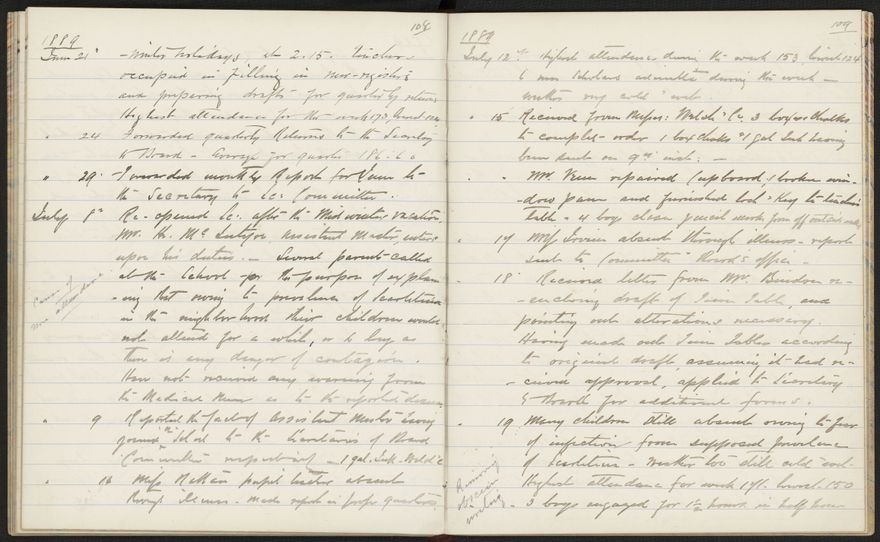 108
1889
June 21st - winter holidays at 2.15. Teachers
occupied in filling in new registers
and preparing drafts for quarterly returns
Highest attendance for the week 193, lowest
" 24 Forwarded quarterly Returns to the Secretary
to Board - Average for quarter 186.6
" 29. Forwarded monthly Report for June to
the Secretary to Sc: Committee.
July 8th Re-opened Sc: after the Midwinter vacation.
Mr. H. Mc assistant master, enters
upon his duties. - Several parents called
at the School for the purpose of explain
-ing that owing to prevalence of Scarlatina
in the neighborhood their children would
not attend for a while, or so long as
there is any danger of contagion.
Have not received any warning from
the Medical as to the reported disease
Cause of
non attendance
" 9 Reported the fact of Assistant Master having
joined the School to the Secretaries of Board
Committee respectively - 1 gal. Ink - Welch
" 10 Miss pupil teacher absent
through illness - made report in proper quarters
109
1889
July 12th Highest attendance during the week 153 lowest 124
6 new Scholars admitted during the week -
weather very cold & wet.
" 15 Received from Messrs: Welch & Co. 3 boxes chalks
to complete order 1 box chalks & 1 gal Ink having
been sent on 9th inst. -
" " Mr. repaired cupboard, broken win-
-dow pane and furnished lock & Key to teacher's
table - 4 boys clean pencil work from off outside walls
" 17 Miss absent through illness - report
sent to Committee & Board's offices -
" 18 Received letter from Mr. re-
-enclosing draft of Time Table, and
pointing out alterations necessary.
Having made out Time Tables according
to original draft, assuming it had re-
-ceived approval, applied to Secretary
& Board for additional forms.
" 19 Many children still absent owing to fear
of infection from supposed prevalence
of Scarlatina - Weather too still cold & wet.
Highest attendance for week 171. lowest 150
Removing
obscene
writing
- 3 boys engaged for 1½ hours in half hour